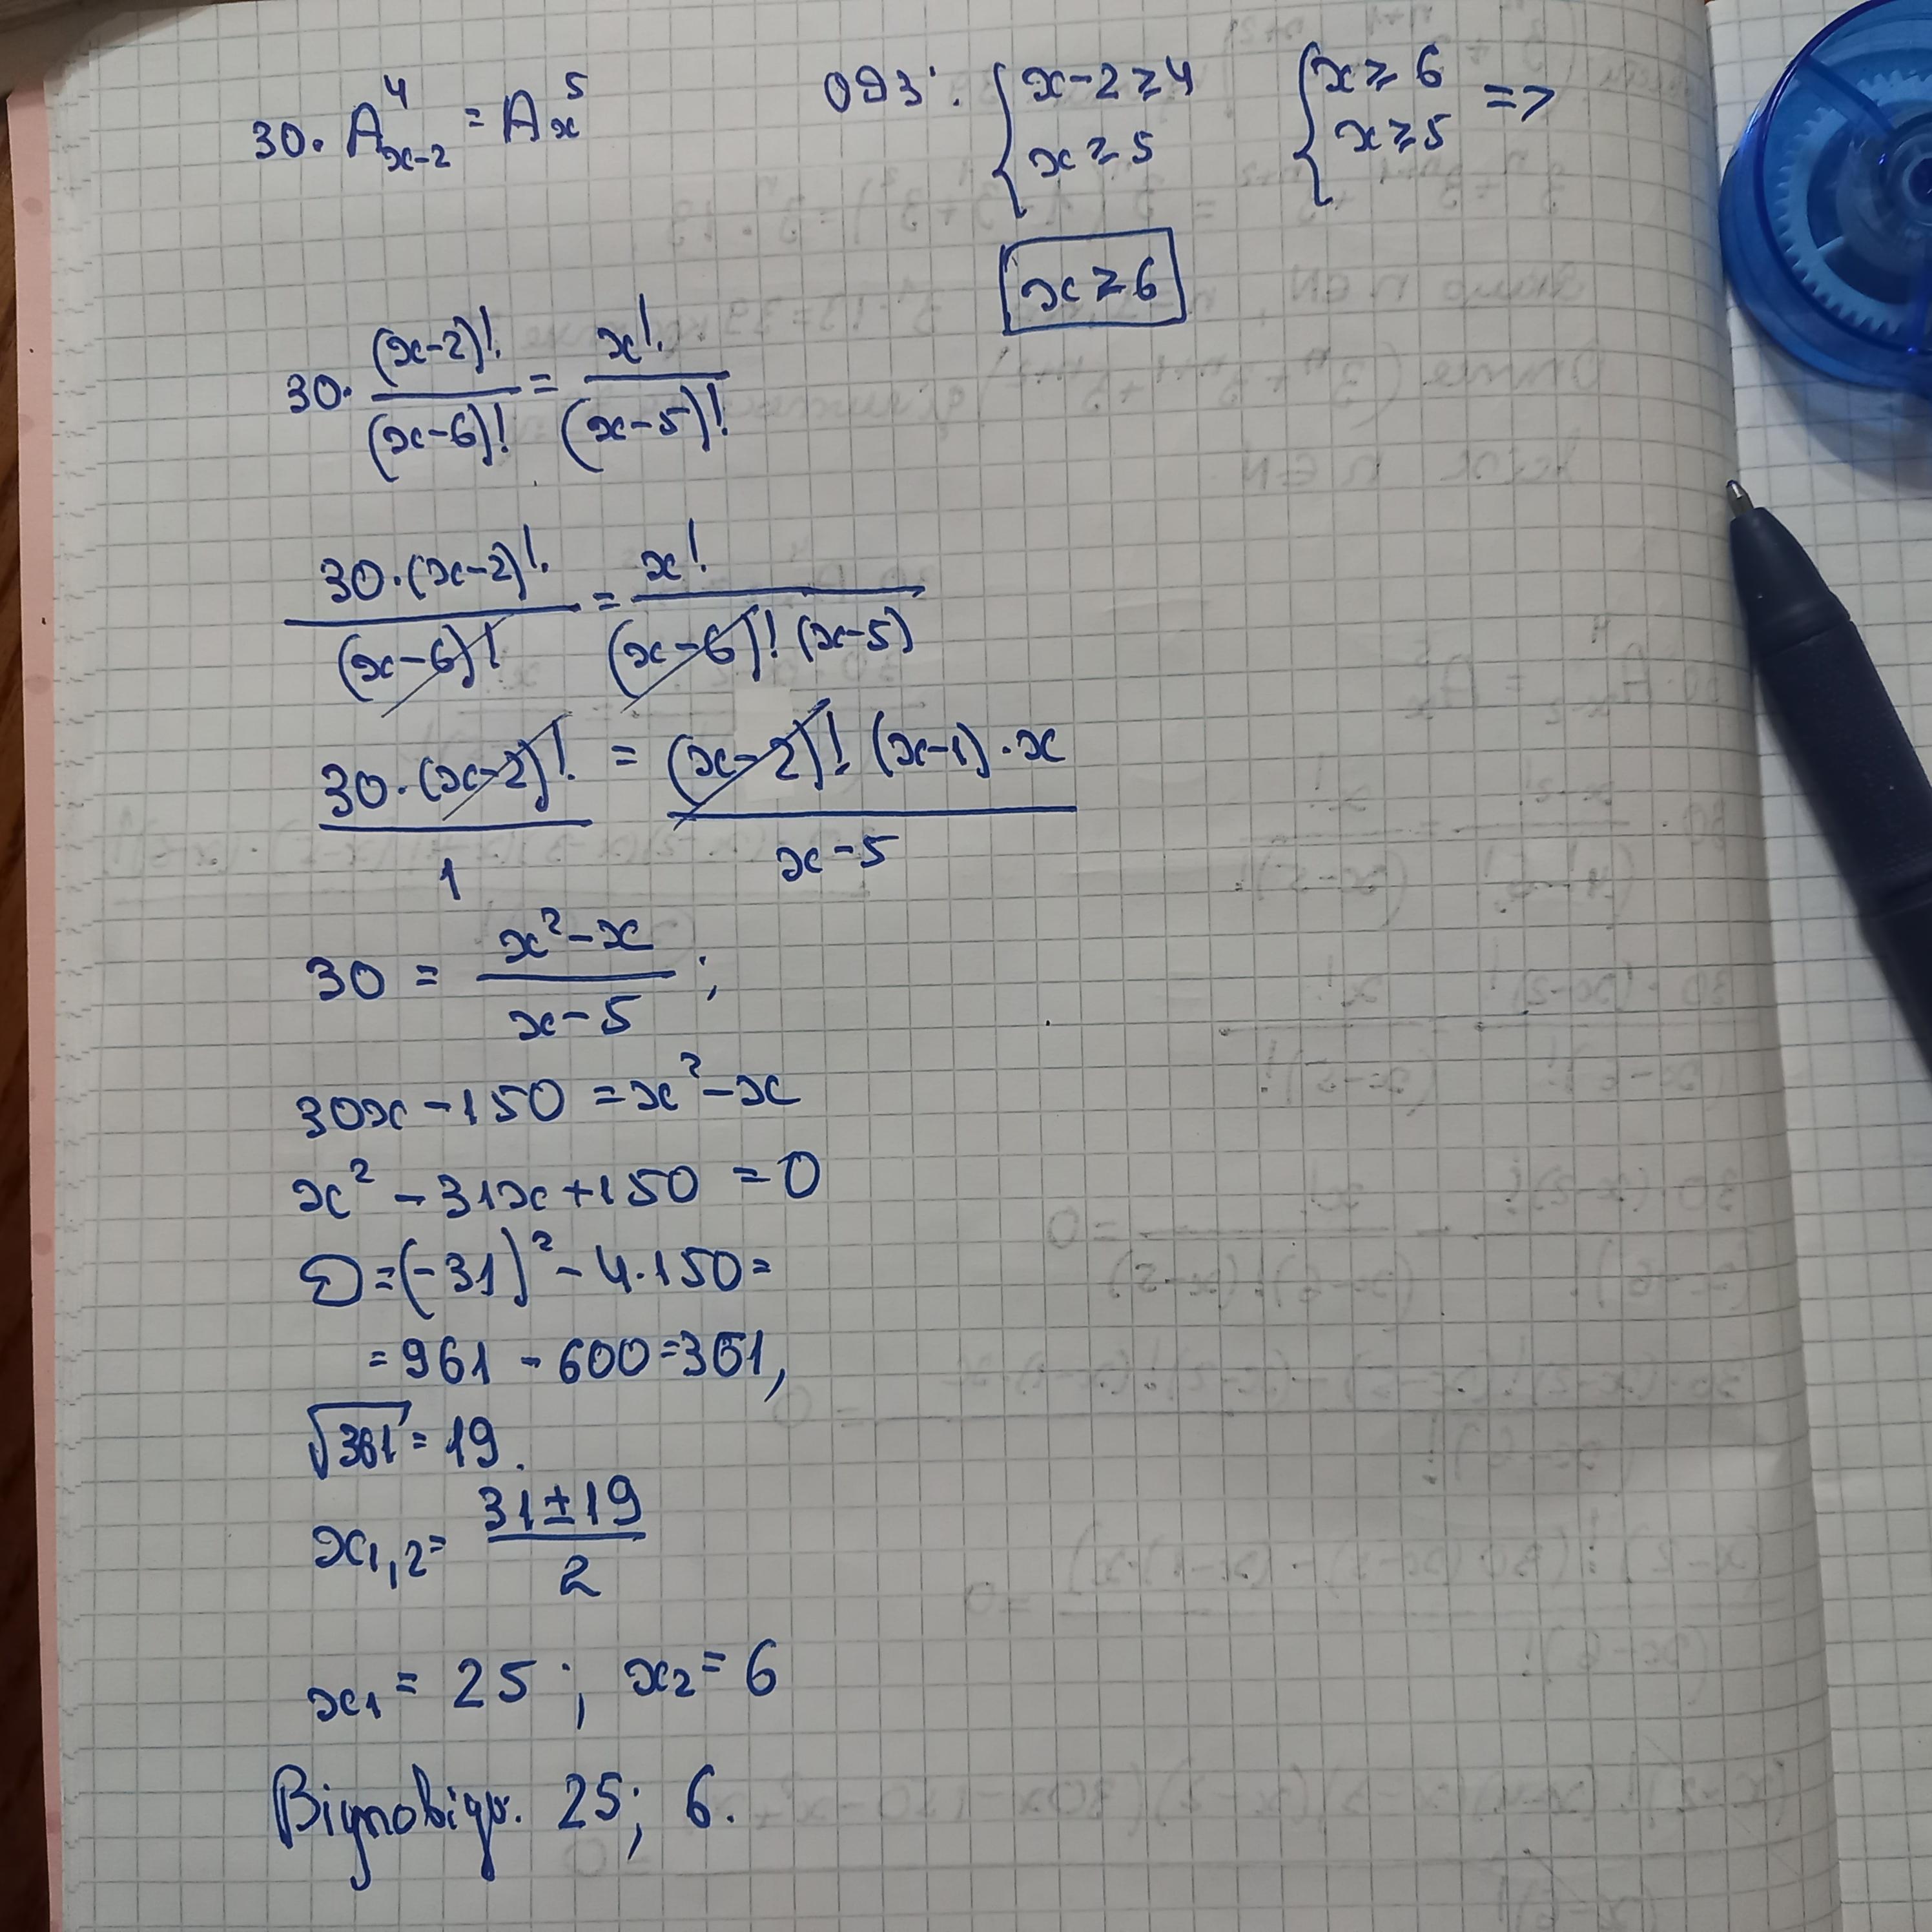 30. A⁴ₓ₋₂ = A⁵ₓ ОДЗ: { x-2 ≥ 4 { x ≥ 6 =>
x ≥ 5 x ≥ 5
x ≥ 6
30. (x-2)! / (x-6)! = x! / (x-5)!
30·(x-2)! / (x-6)! = x! / (x-6)! (x-5)
30·(x-2)! / 1 = (x-2)! (x-1)·x / x-5
30 = x²-x / x-5 ;
30x-150 = x²-x
x² - 31x+150 = 0
D=(-31)² - 4.150=
=961 - 600=361,
√361 = 19.
x₁,₂= 31±19 / 2
x₁ = 25 ; x₂ = 6
Відповідь. 25; 6.